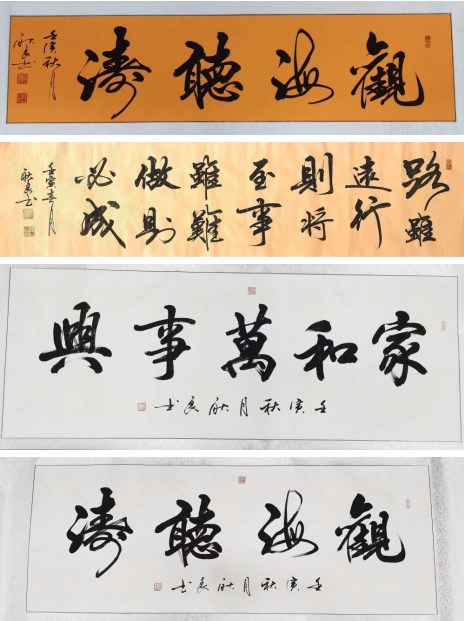 觀海聽濤
壬寅秋月
良书
路雖
遠行
則將
至事
雖難
做則
必成
壬寅春月
良书
家和萬事興
壬寅秋月良书
觀海聽濤
壬寅秋月良书